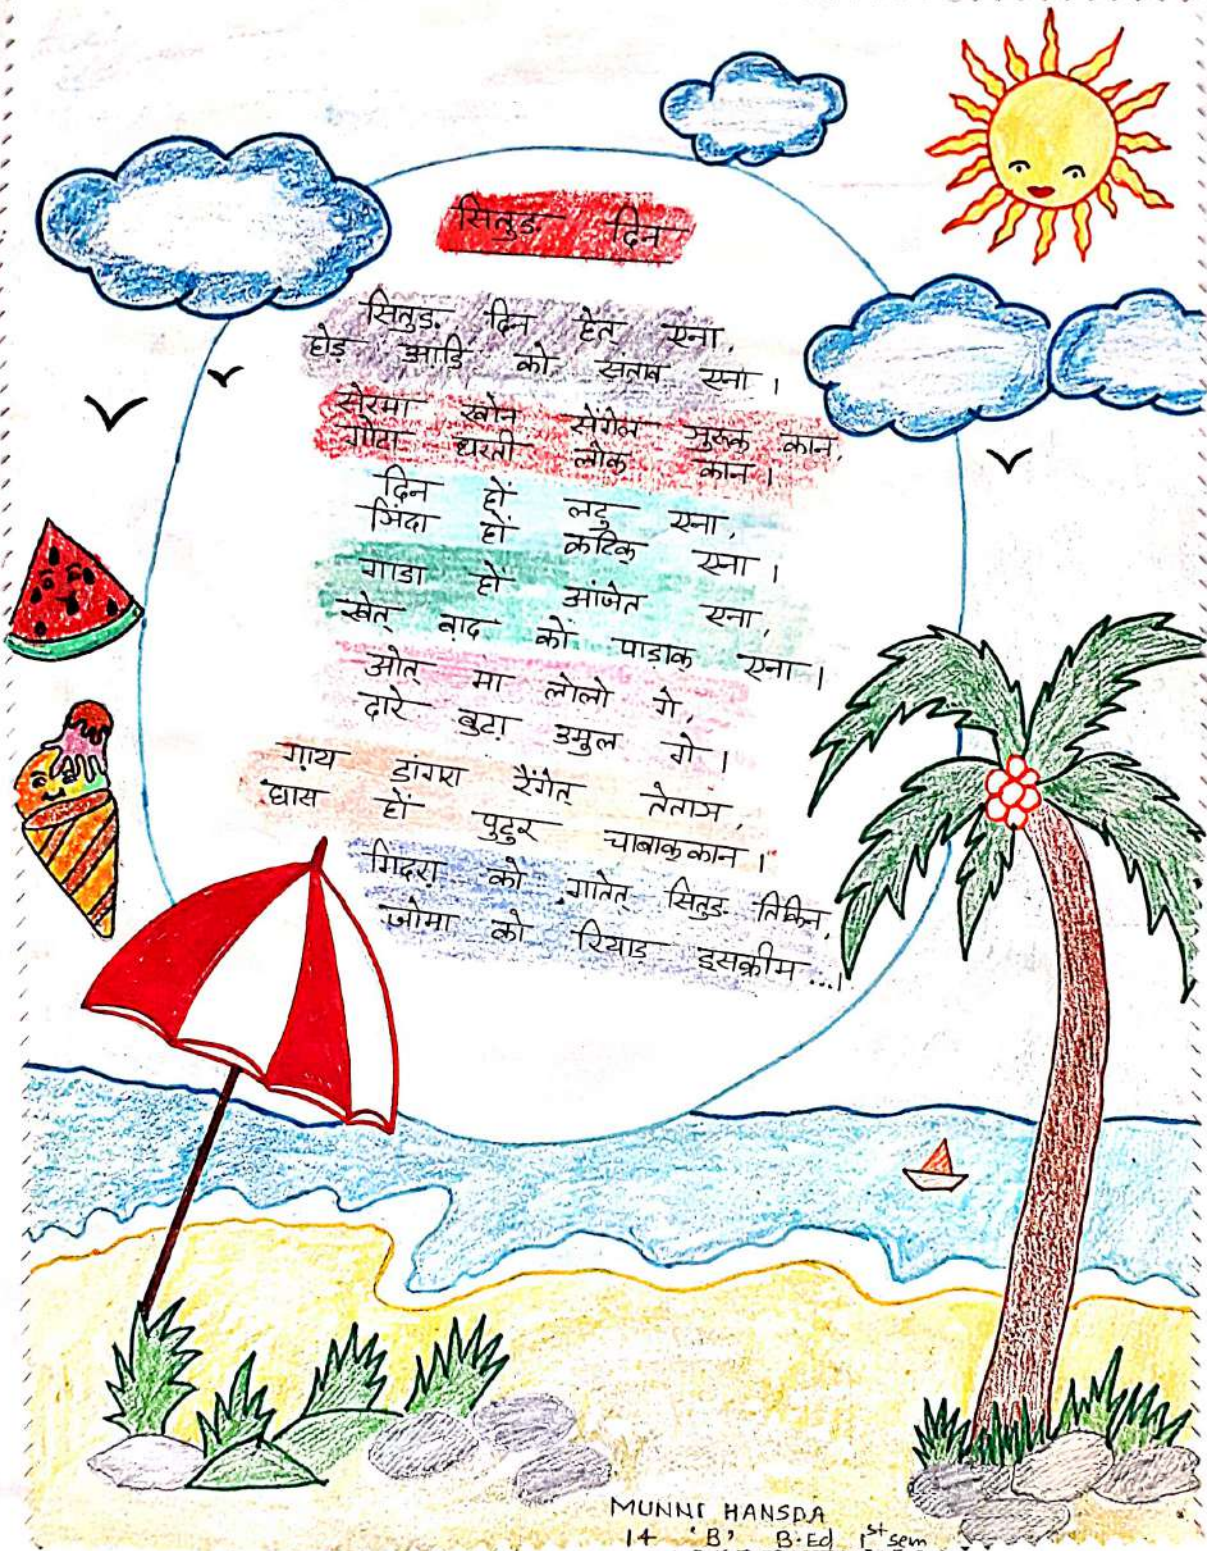 सितुङ दिन
सितुङ. दिन हेत् एना,
होड़ आड़ि को सताव एना ।
सेरमा खोन सेंगेल जुरुक् कान,
गोटा धरती लोक् कान ।
दिन हों लटु एना,
ञिंदा हों कटिक् एना ।
गाडा हों आंजेत एना,
खेत् बाद को पाड़ाक् एना ।
ओत् मा लोलो गे,
दारे बुटा़ उमुल गे ।
गा़य डांगरा रेंगेत् तेताञ,
घास हों पुटुर चाबाक्कान ।
गिदरा़ को गातेत् सितुङ. तिकिन,
जोमा को रियाड़ इसक्रीम ...।
MUNNI HANSDA
14 'B' B.Ed 1st sem